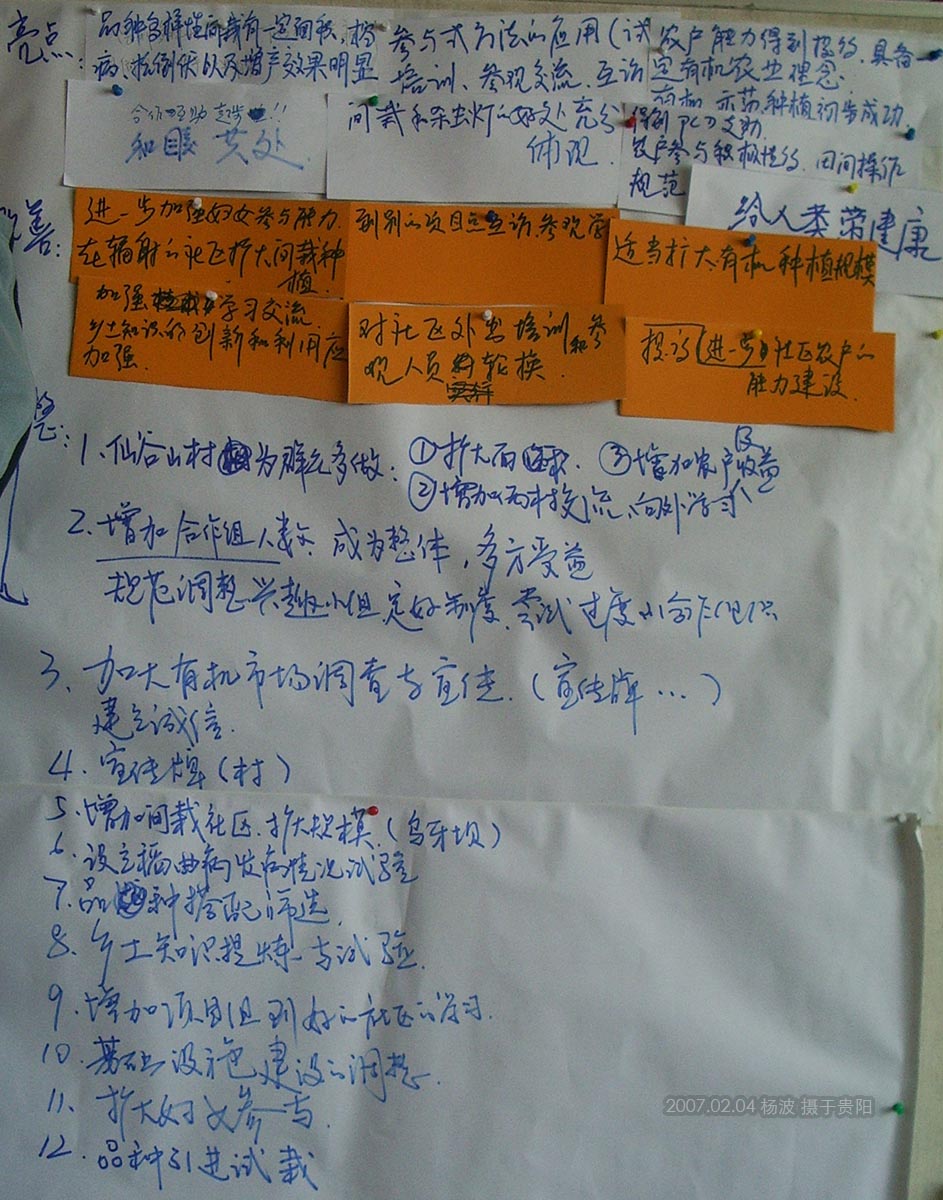 亮点:
品种多样性间栽有一定面积,抗
病、抗倒伏以及增产效果明显
合作互助
和睦共处
参与式方法的应用(试
培训、参观交流、互访
间栽和杀虫灯的好处充分
体现
农户能力得到提高,具备一
定有机农业理念
有机示范种植初步成功
得到PCD支助
农户参与积极性高,田间操作
规范
给人类带健康
善:
进一步加强妇女参与能力
在辐射的社区扩大间栽种
植
到别的项目点互访、参观学
适当扩大有机种植规模
加强学习交流
乡土知识的创新和利用应
加强.
对社区外出培训和参
观人员轮换
提高(进一步)社区农户的
能力建设
1、仙谷山村为群众多做:①扩大面积. ③增加农户收益
②增加两种交流、向外学习
2、增加合作组人数 成为整体,多方受益
规范调整兴趣小组,定好制度、尝试过度到合作组织
3、加大有机市场调查与宣传.(宣传牌…)
建立诚信.
4.宣传牌(村)
5、增加间栽社区.扩大规模(乌牙坝)
6、设立稻曲病发病情况试验
7、品种搭配筛选
8、乡土知识提炼与试验
9、增加项目组到好的社区的学习.
10、基础设施建设的调整.
11、扩大妇女参与.
12、品种引进试栽
2007.02.04 杨波 摄于贵阳